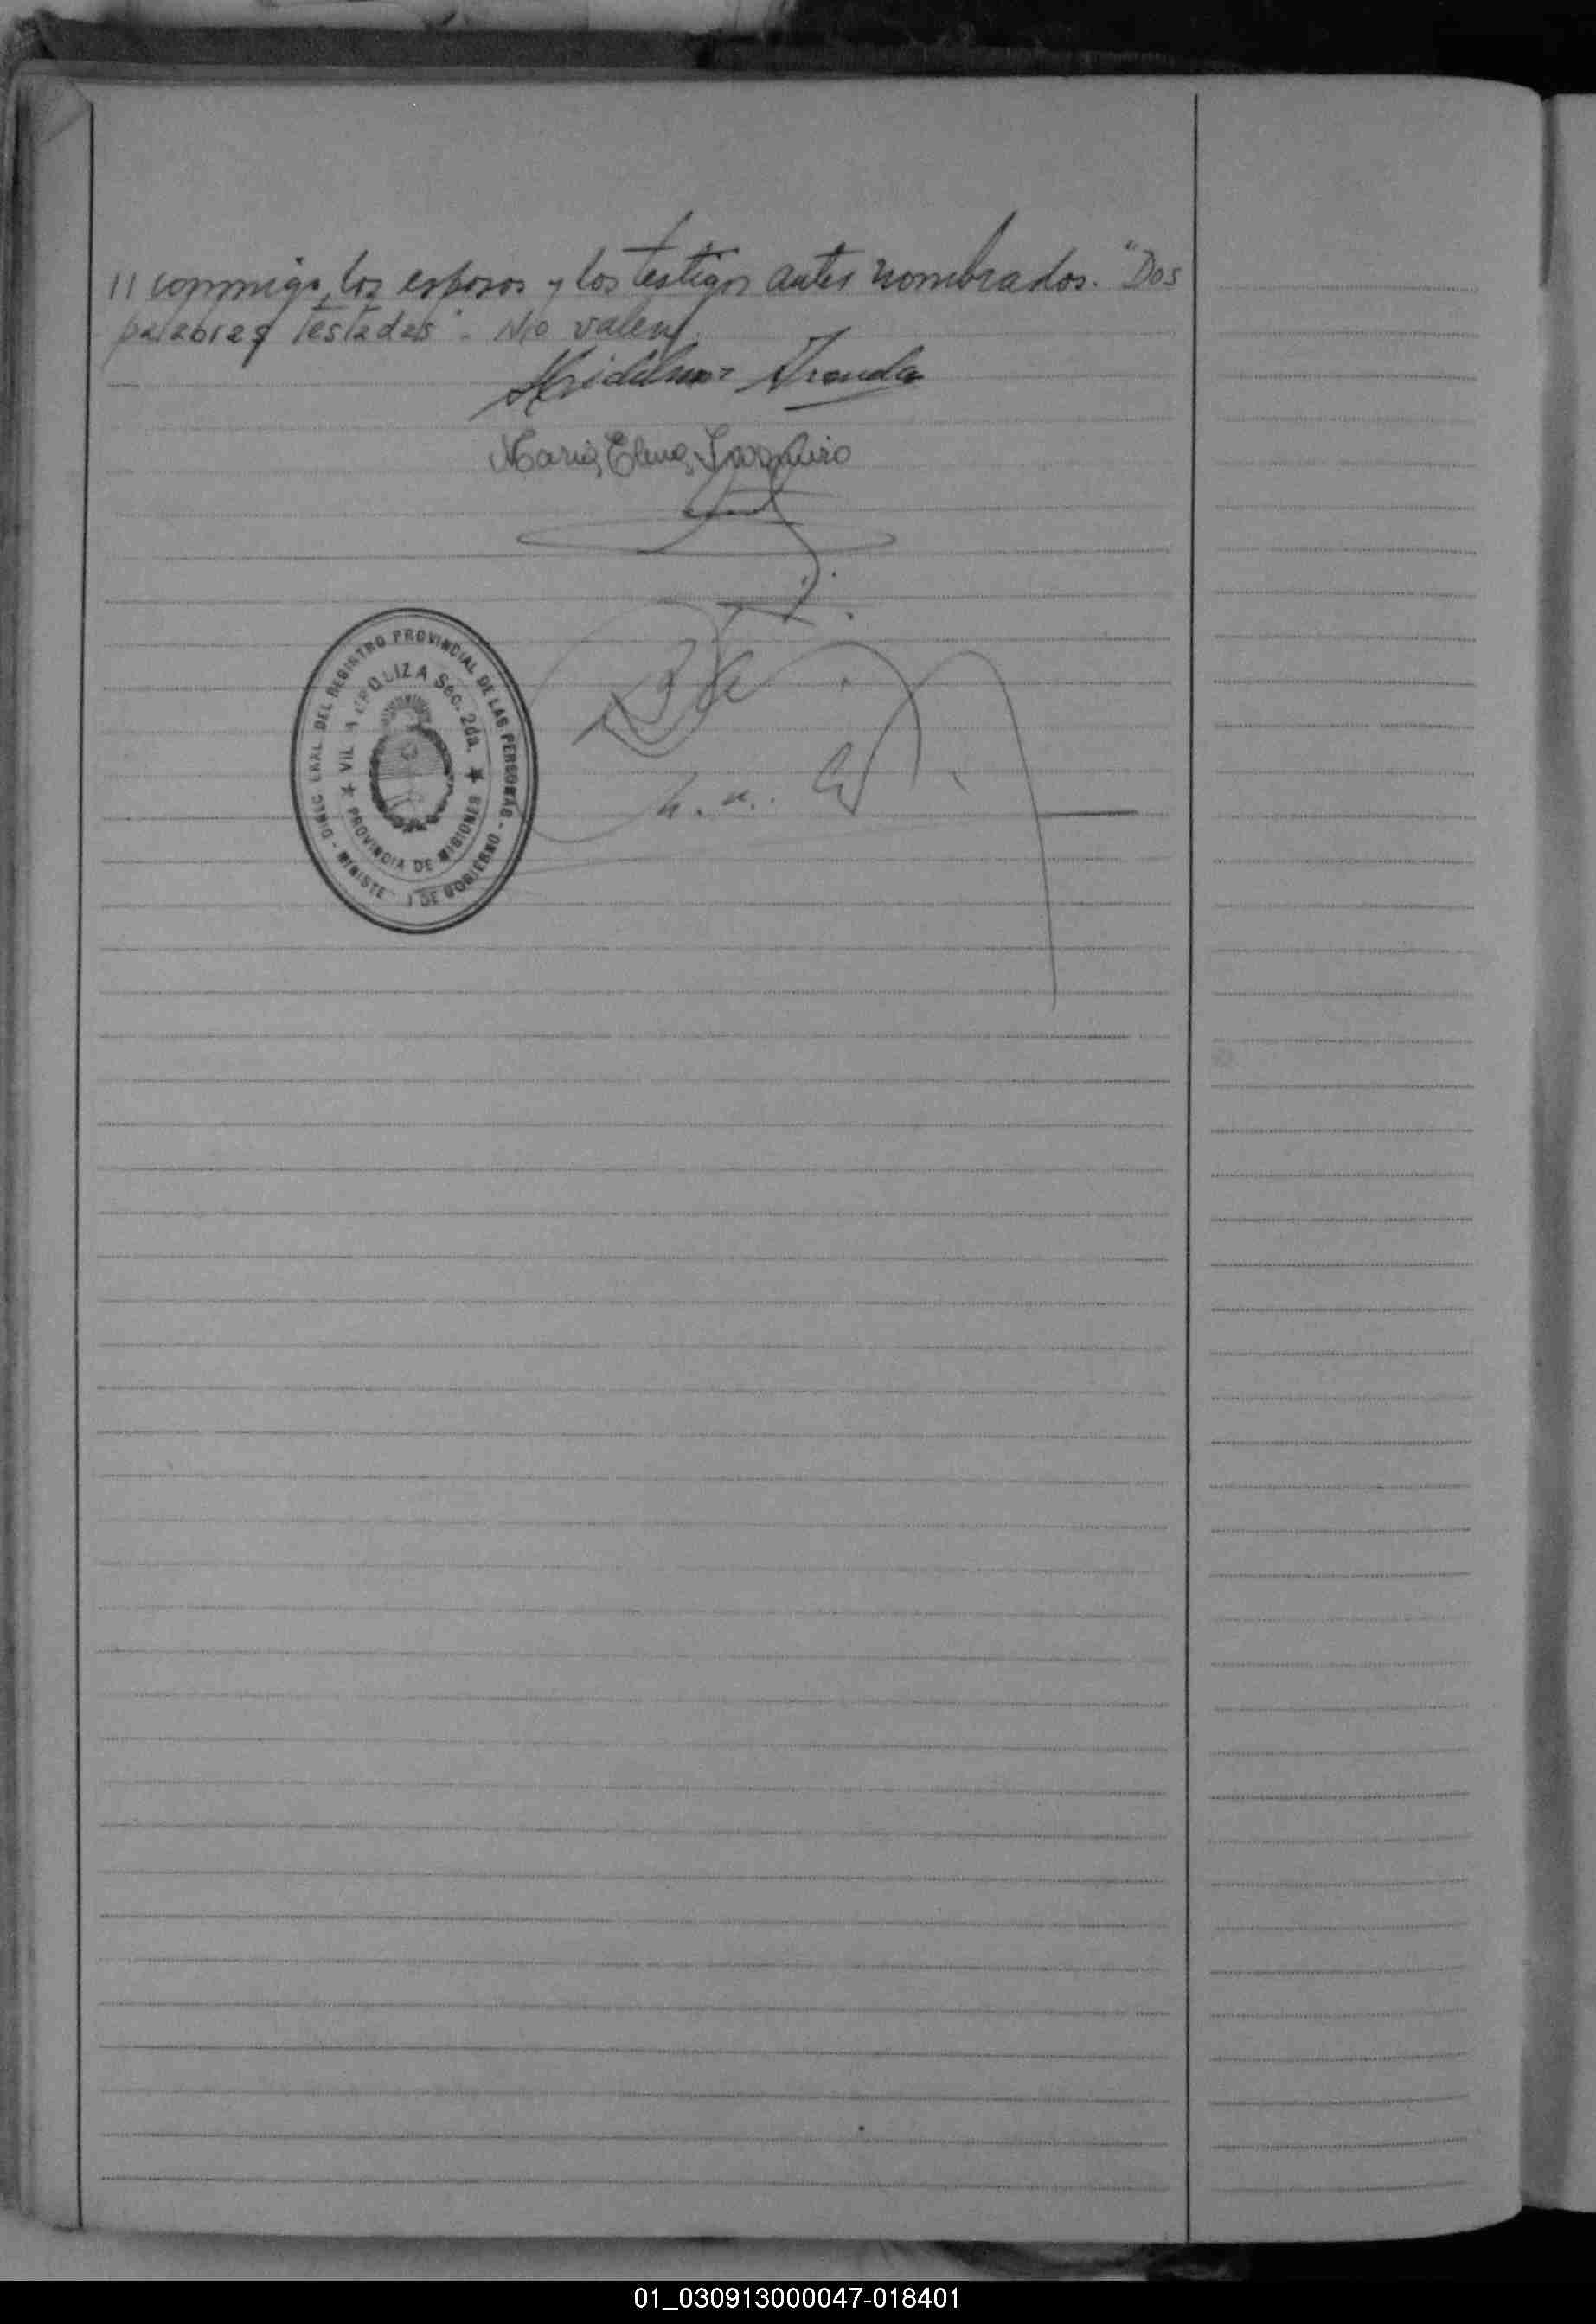 // conmigo, los esposos y los testigos antes nombrados. "Dos
palabras testadas". No valen.
Aranda
Maria Elena
DIREC. GRAL. DEL REGISTRO PROVINCIAL DE LAS PERSONAS - MINISTE DE GOBIERNO
VILLA URQUIZA Sec. 2da.
PROVINCIA DE MISIONES
01_030913000047-018401